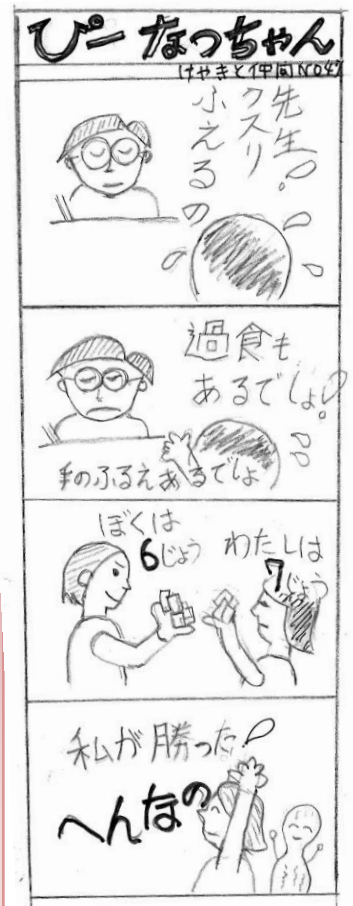 ぴーなっちゃん
けやきと仲間NO47
先生!
クスリ
ふえるの
過食も
あるでしょ!
手のふるえあるでしょ
ぼくは
6じょう
わたしは
7じょう
私が勝った!
へんなの